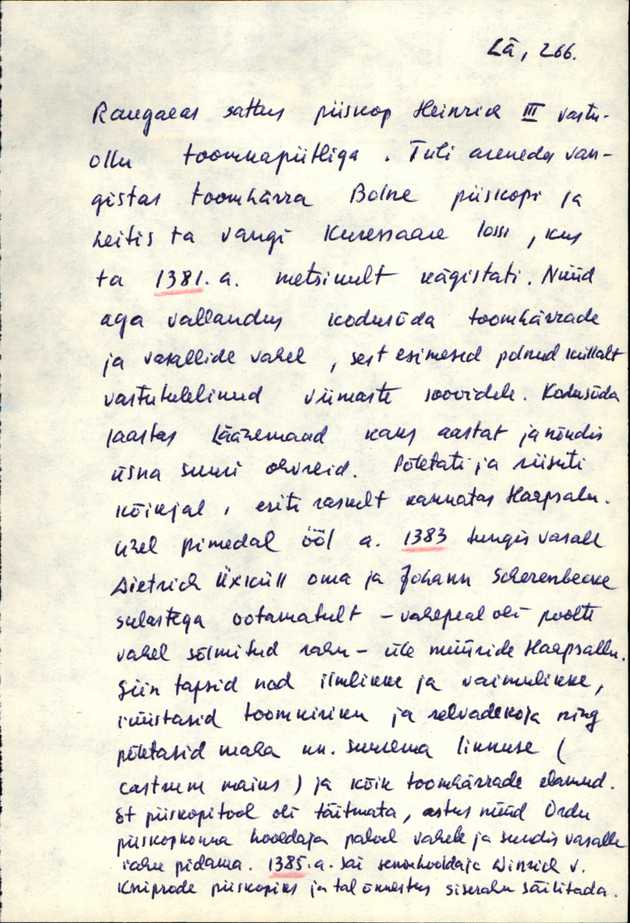 Lä, 266.
Raugaeas sattus piiskop Heinrich III vastu-
ollu toomkapiitliga. Tüli arenedes van-
gistas toomhärra Bolne piiskopi ja
heitis ta vangi Kuressaare lossi, kus
ta 1381. a. metsikult kägistati. Nüüd
aga vallandus kodusõda toomhärrade
ja vasallide vahel, sest esimesed polnud küllalt
vastutulelikud viimaste soovidele. Kodusõda
laastas Läänemaad kaks aastat ja nõudis
üsna suuri ohvreid. Põletati ja riisuti
kõikjal, eriti raskelt kannatas Haapsalu.
Ühel pimedal ööl a. 1383 tungis vasall
Dietrich Üxküll oma ja Johann Scherenbecke
sulastega ootamatult – vahepeal oli poolte
vahel sõlmitud rahu – üle müüride Haapsallu.
Siin tapsid nad ilmlikke ja vaimulikke,
rüüstasid toomkiriku ja relvadekoja ning
põletasid maha nn. suurema linnuse (
castrum maius) ja kõik toomhärrade elamud.
Et piiskopitool oli täitmata, astus nüüd Ordu
piiskopkonna hooldaja palvel vahele ja sundis vasalle
rahu pidama. 1385. a. sai senine hooldaja Winrich v.
Kniprode piiskopiks ja tal õnnestus siserahu säilitada.